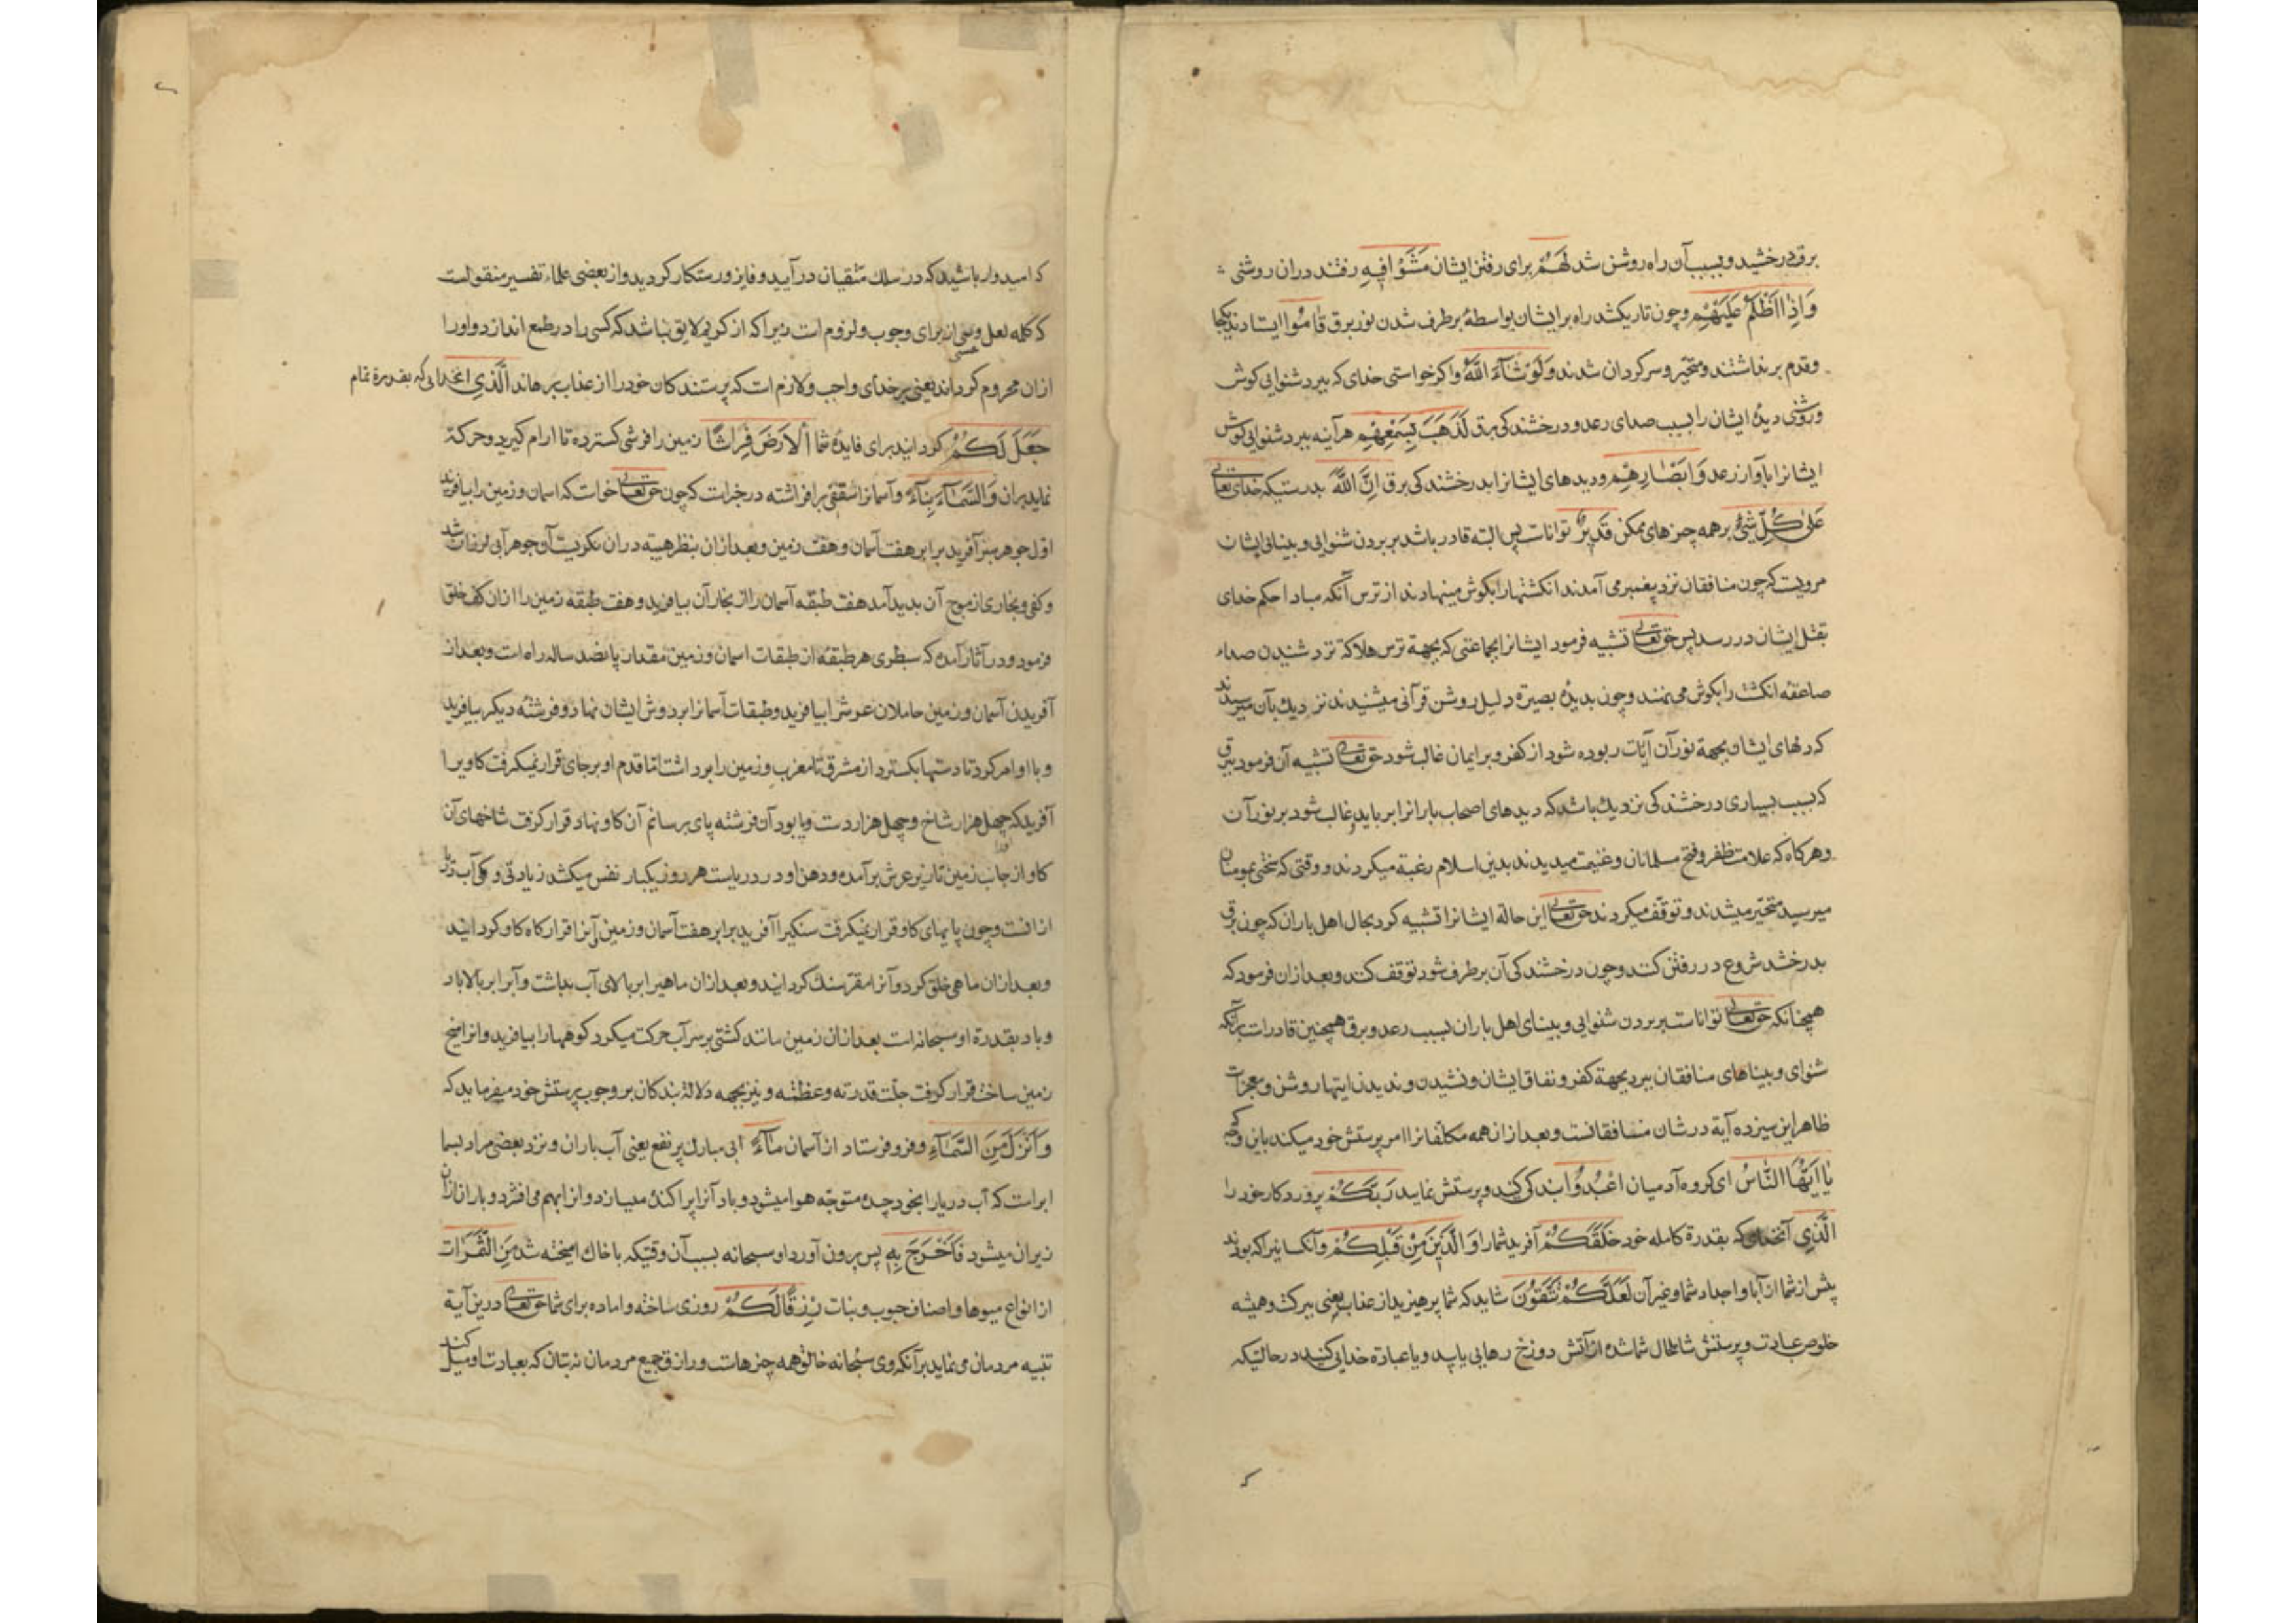 برق درخشید و بسبب آن راه روشن شد لَهُمْ برای رفتن ایشان مَشَوْا فِیهِ رفتند در ان روشنی
وَاِذَا اَظْلَمَ عَلَیْهِمْ وچون تاریکشد راه بر ایشان بواسطهٔ برطرف شدن نور برق قَامُوا ایستادند یکجا
وقدم برنداشتند و متحیّر و سرکردان شدند وَلَوْ شَآءَ اللّٰهُ واکر خواستی خدای که ببرد شنوایی کوش
وروشنی دیدهٔ ایشان را بسبب صدای رعد و درخشندکی برق لَذَهَبَ بِسَمْعِهِمْ هرآینه ببرد شنوایی کوش
ایشانرا باواز رعد وَاَبْصَارِهِمْ ودیدهای ایشانرا بدرخشندکی برق اِنَّ اللّٰهَ بدرستیکه خدای تعالی
عَلٰی کُلِّ شَیْءٍ برهمه چیزهای ممکن قَدِیرٌ تواناست پس البته قادر باشد بر بردن شنوایی و بینائی ایشان
مرویست که چون منافقان نزد پیغمبر می آمدند انکشتها را بکوش مینهادند از ترس آنکه مبادا حکم خدای
بقتل ایشان در رسد پس حق تعالی تشبیه فرمود ایشانرا بجماعتی که بجهة ترس هلاکة نزد شنیدن صداء
صاعقه انکشت را بکوش می نهند وچون بدیدهٔ بصیرة دلیل روشن قرآنی میشنیدند نزدیك بآن میرسیدند
که دلهای ایشان بجهة نور آن آیات ربوده شود از کفر و بر ایمان غالب شود حق تعالی تشبیه آن فرمود ببرق
که بسبب بسیاری درخشندکی نزدیك باشد که دیدهای اصحاب بارانرا برباید و غالب شود بر نور آن
وهرکاه که علامت ظفر و فتح مسلمانان و غنیمت میدیدند بدین اسلام رغبة میکردند و وقتی که سختی بمومنان
میرسید متحیّر میشدند و توقّف میکردند حق تعالی این حالة ایشانرا تشبیه کرد بحال اهل باران که چون برق
بدرخشد شروع در رفتن کنند وچون درخشندکی آن برطرف شود توقف کنند وبعد ازان فرمود که
همچنانکه حق تعالی تواناست بر بردن شنوایی و بینای اهل باران بسبب رعد و برق همچنین قادرست برآنکه
شنوای و بیناهای منافقان ببرد بجهة کفر و نفاق ایشان و نشیدن و ندیدن ایتها روشن و معجزات
ظاهر این سیزده آیة در شان منافقانست وبعد ازان همه مکلفانرا امر بپرستش خود میکند باین وجه که
یٰا اَیُّهَا النَّاسُ ای کروه آدمیان اعْبُدُوا بندکی کنید و پرستش نمایید رَبَّکُمْ پروردکار خود را
الَّذِی آنخدای که بقدرة کامله خود خَلَقَکُمْ آفرید شما را وَالَّذِینَ مِنْ قَبْلِکُمْ وآنکسانیرا که بودند
پیش از شما از آبا و اجداد شما و غیر آن لَعَلَّکُمْ تَتَّقُونَ شاید که شما پرهیزید از عذاب یعنی ببرکت و همیشه
خلوص عبادت و پرستش شامل حال شما شده از آتش دوزخ رهایی یابید و یا عبادة خدایی کنید در حالتیکه
که امیدوار باشید که در سلك متقیان در آیید و فایز و رستکار کردید واز بعضی علماء تفسیر منقولست
که کلمه لعل و عسی از برای وجوب و لزوم است زیرا که از کریم لایق نباشد که کسی را در طمع اندازد و اورا
ازان محروم کرداند یعنی بر خدای واجب ولازم است که پرستندکان خود را از عذاب برهاند الَّذِی انخدایی که بقدرة تمام
جَعَلَ لَکُمُ کردانید برای فایدهٔ شما اَلْاَرْضَ فِرَاشًا زمین را فرشی کسترده تا ارام کیرید و حرکة
نمایید بران وَالسَّمَآءَ بِنَآءً وآسمانرا سقفی برافراشته در خبراست که چون حق تعالی خواست که اسمان و زمین را بیافریند
اوّل جوهر سبز آفرید برابر هفت آسمان و هفت زمین و بعد ازان بنظر هیبة دران نکریست آن جوهر آبی لرزان شد
وکفی و بخاری از موج آن پدید آمد هفت طبقهٔ آسمان را از بخار آن بیافرید و هفت طبقهٔ زمین را ازان کف خلق
فرمود و در آثار آمده که سطبری هر طبقهٔ از طبقات اسمان و زمین مقدار پانصد ساله راه است وبعد از
آفریدن آسمان و زمین حاملان عرش را بیافرید و طبقات آسمانرا بر دوش ایشان نهاد و فرشتهٔ دیکر بیافرید
و با او امر کرد تا دستها بکسترد از مشرق تا مغرب و زمین را برداشت امّا قدم او بر جای قرار نمیکرفت کاویرا
آفرید که چهل هزار شاخ و چهل هزار دست و پا بود آن فرشته پای بر سنام آن کاو نهاد قرار کرفت شاخهای آن
کاو از جانب زمین تا زیر عرش برآمده و دهن او در دریاست هر روز یکبار نفس میکشد زیادتی و کمی آب دریا
ازانست وچون پایهای کاو قرار نمیکرفت سنکیرا آفرید برابر هفت آسمان و زمین و آنرا قرارکاه کاو کردانید
وبعد ازان ماهی خلق کرد و آنرا مقر سنك کردانید و بعد ازان ماهیرا بر بالای آب بداشت و آبرا بر بالای باد
وباد بقدرة او سبحانه است بعد ازان زمین مانند کشتی بر سر آب حرکت میکرد کوهها را بیافرید و انرا میخ
زمین ساخت قرار کرفت جلّت قدرته و عظمته و نیز بجهه دلالة بندکان بر وجوب پرستش خود میفرماید که
وَاَنْزَلَ مِنَ السَّمَآءِ وفرو فرستاد از آسمان مَآءً ابی مبارك پر نفع یعنی آب باران و نزد بعضی مراد بسما
ابراست که آب دریا را بخود جذب متوجّه هوا میشود و باد آنرا پراکنده میسازد و انرا بهم می افشرد و باران ازان
ریزان میشود فَاَخْرَجَ بِهِ پس بیرون آورد او سبحانه بسبب آن وقتیکه با خاك امیخته شد مِنَ الثَّمَرَاتِ
از انواع میوها و اصناف حبوب و نبات رِزْقًا لَکُمْ روزی ساخته و اماده برای شما حق تعالی درین آیة
تنبیه مردمان می نماید برآنکه وی سبحانه خالق همه چیزهاست و رازق جمیع مردمان نه بتان که بعبادت او میل کنند